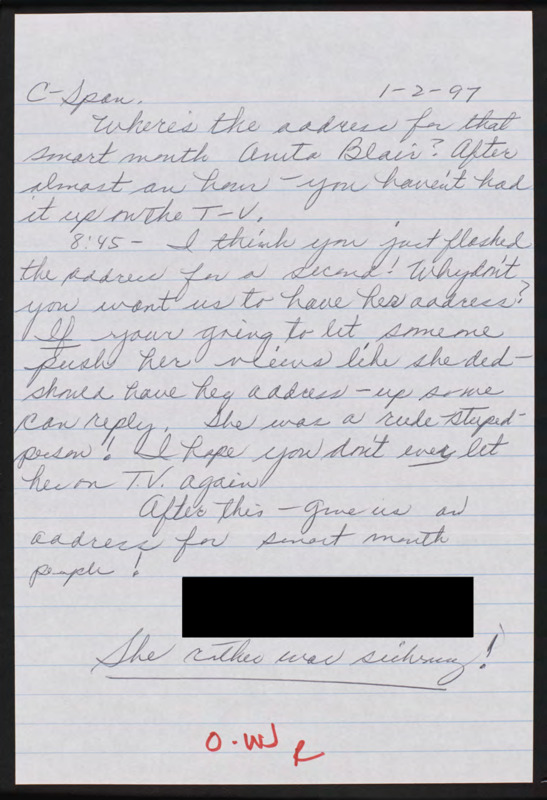 C-Span.
1-2-97
Where's the address for that
smart mouth Anita Blair? After
almost an hour - you haven't had
it up on the T-V.
8:45 - I think you just flashed
the address for a second! Why don't
you want us to have her address?
If your going to let someone
push her views like she did -
should have her address - up so we
can reply. She was a rude stuped -
person! I hope you don't ever let
her on T.V. again
After this - give us an
address for smart mouth
people!
She rather was
O.W
R